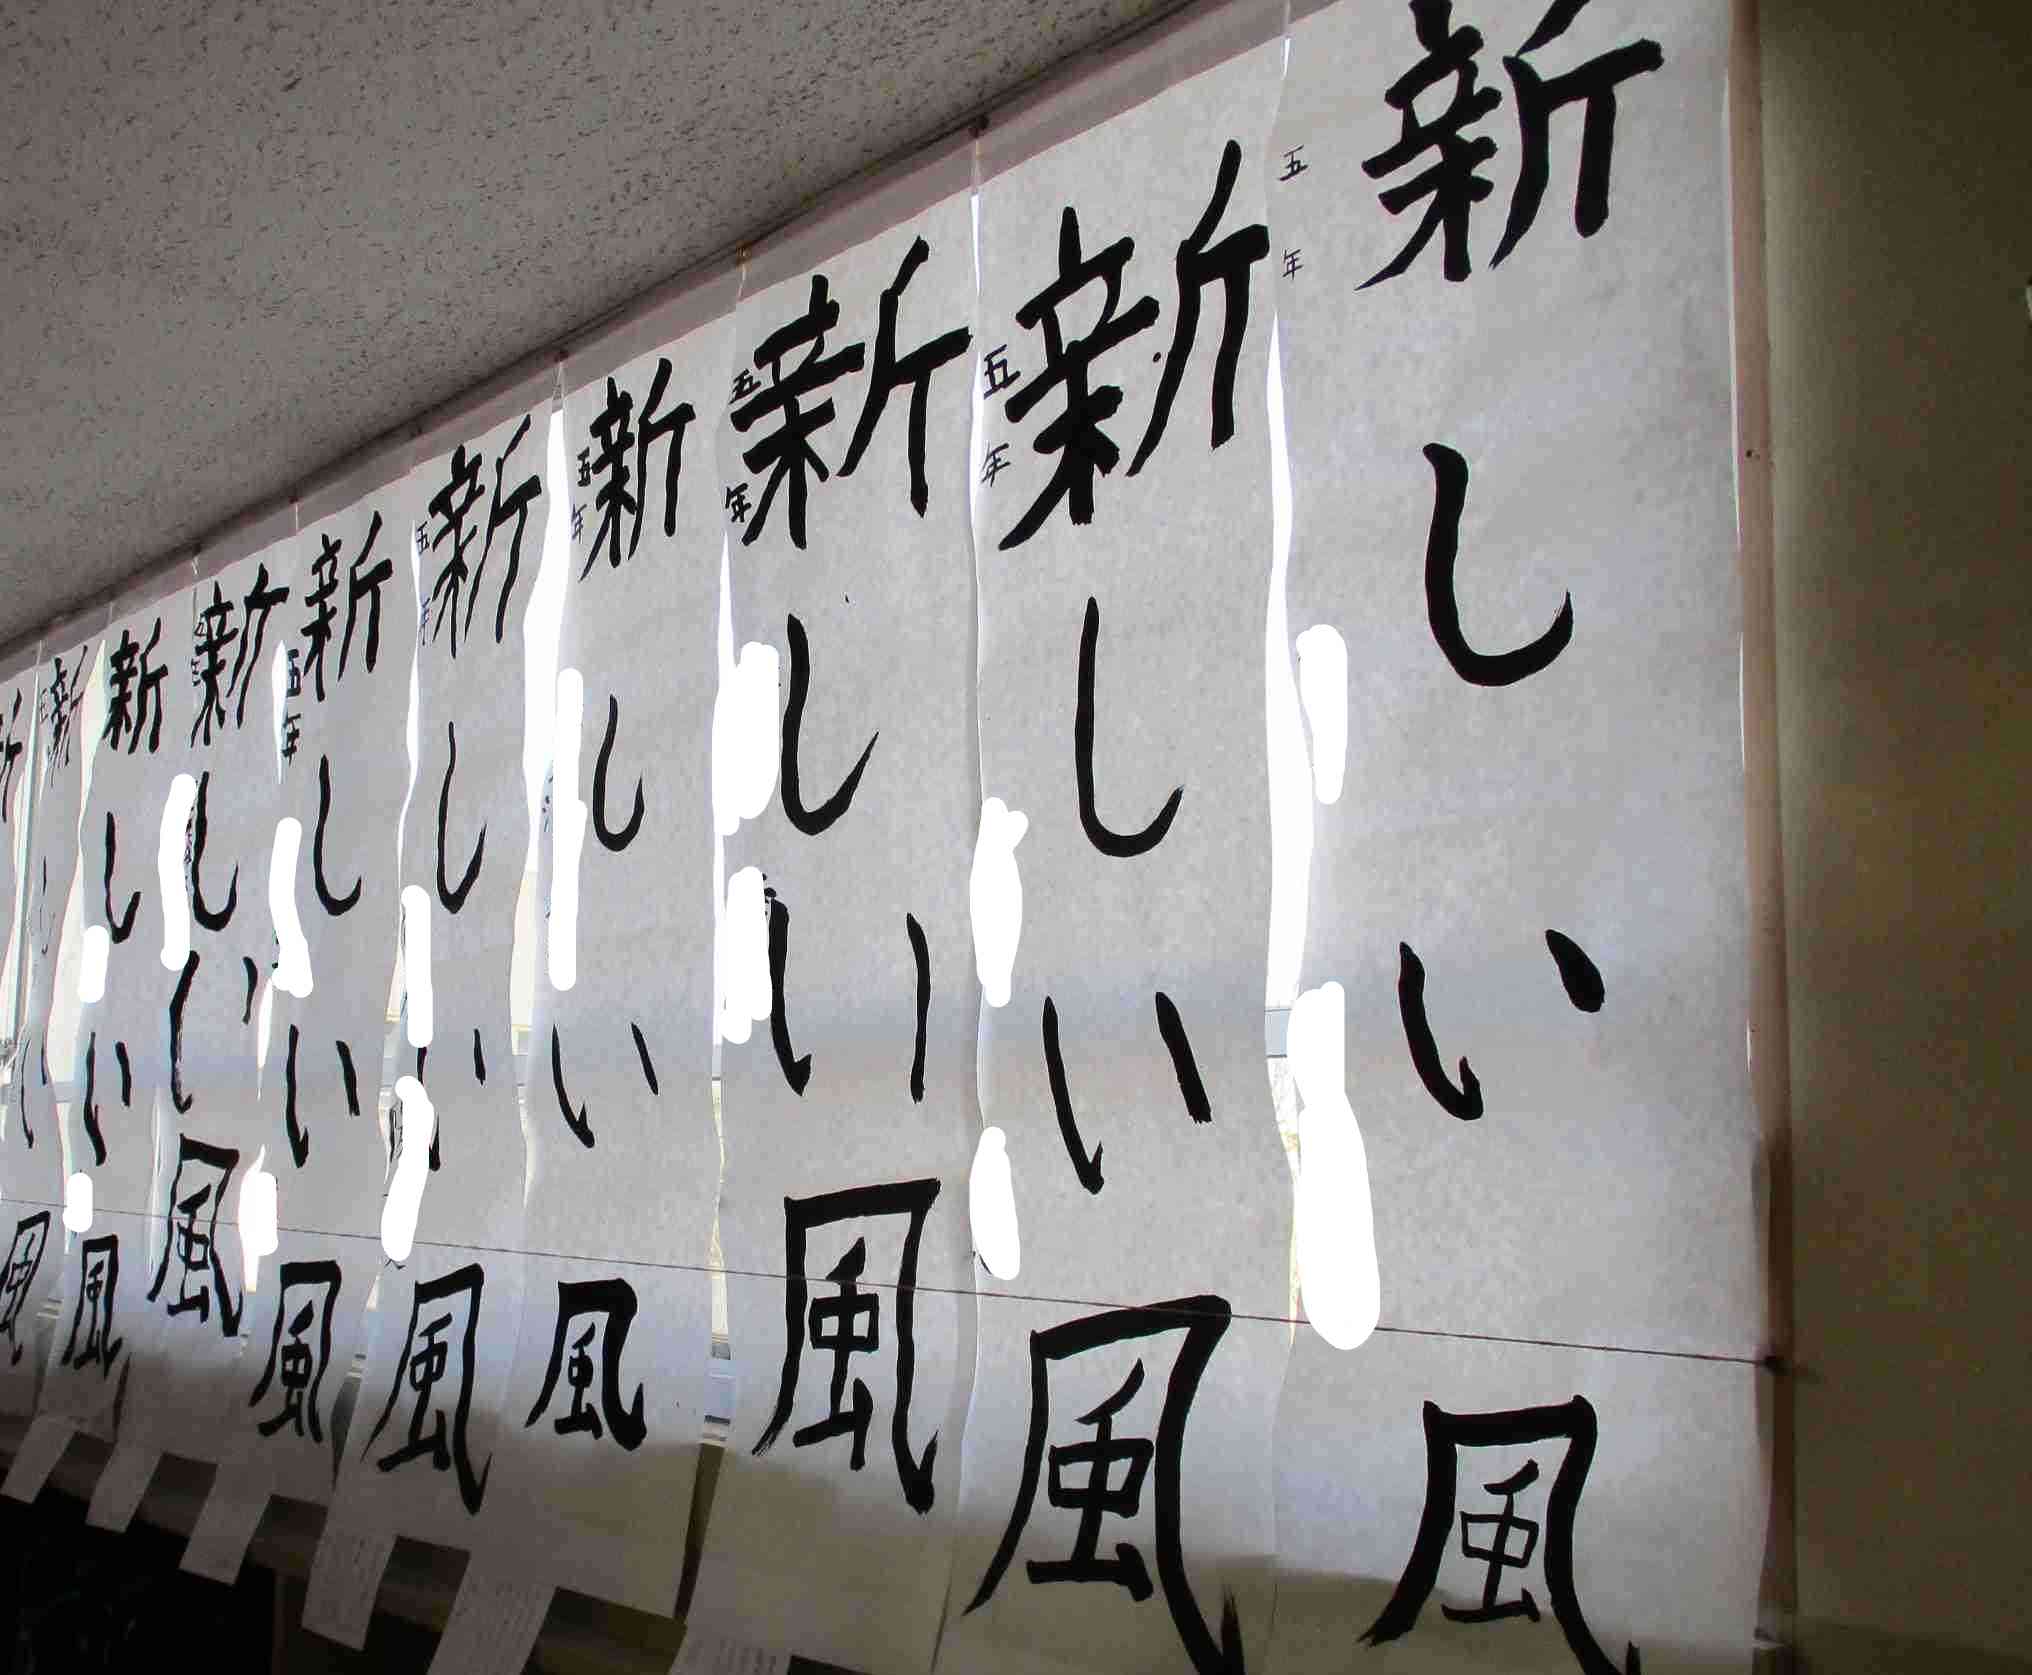 新しい風
五年
新しい風
五年
新しい風
五年
新しい風
五年
新しい風
五年
新しい風
五年
新しい風
新しい風
新しい風